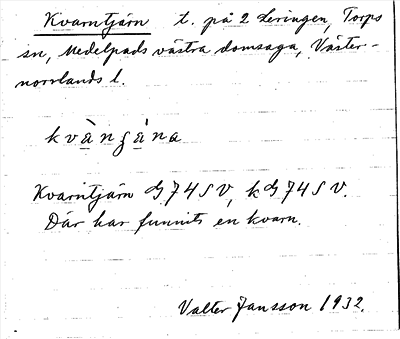 Kvarntjärn t. på 2 Leringen, Torps
sn, Medelpads västra domsaga, Väster-
norrlands l.
kvàngá̀na
Kvarntjärn G 74 S V, k G 74 S V.
Där har funnits en kvarn.
Valter Jansson 1932.